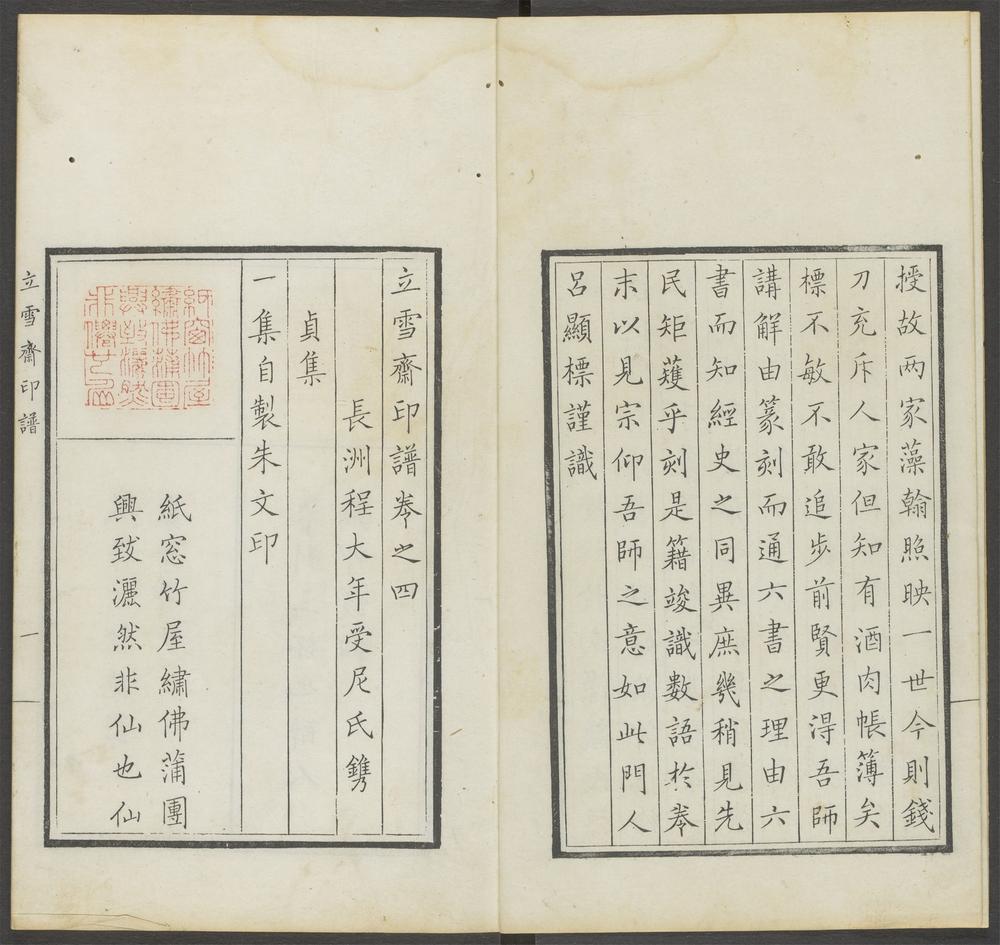 授故两家藻翰照映一世今則錢
刀充斥人家但知有酒肉帳簿矣
標不敏不敢追步前賢更得吾師
講解由篆刻而通六書之理由六
書而知經史之同異庶幾稍見先
民矩矱乎刻是籍竣識數語於卷
末以見宗仰吾師之意如此門人
呂顯標謹識
立雪齋印譜卷之四
長洲程大年受尼氏鐫
貞集
一集自製朱文印
紙窗竹屋
繡佛蒲團
興致灑然
非仙也仙
紙窓竹屋繡佛蒲團
興致灑然非仙也仙
立雪齋印譜
一